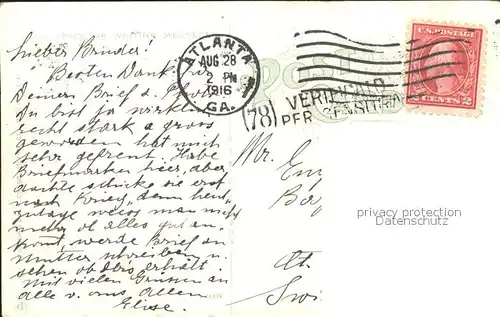 Lieber Bruder!
Besten Dank für
Deinen Brief & Photo
Du bist ja wirklich
recht stark & gross
geworden hat mich
sehr gefreut. Habe
Briefmarken hier, aber
dachte schicke sie erst
nach Krieg, denn heut-
zutage weiss man nicht
mehr ob alles gut an-
komt, werde Brief an
Mutter schreiben u.
sehen ob Ihr's erhält.
Mit vielen Grüssen an
alle v. uns Allen
Elise.
ATLANTA
AUG 28
2 PM
1916
GA.
(78) VERIFICATO
PER CENSURA
U.S. POSTAGE
2 CENTS 2
Mr.
privacy protection
www.oldthing.de